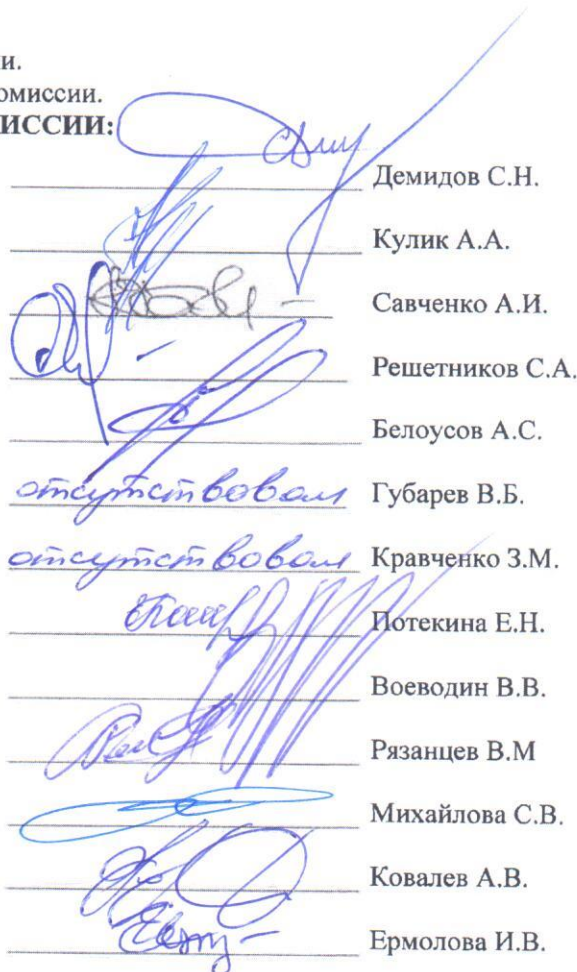 и.
омиссии.
ИССИИ:
Демидов С.Н.
Кулик А.А.
Савченко А.И.
Решетников С.А.
Белоусов А.С.
отсутствовал Губарев В.Б.
отсутствовал Кравченко З.М.
Потекина Е.Н.
Воеводин В.В.
Рязанцев В.М
Михайлова С.В.
Ковалев А.В.
Ермолова И.В.